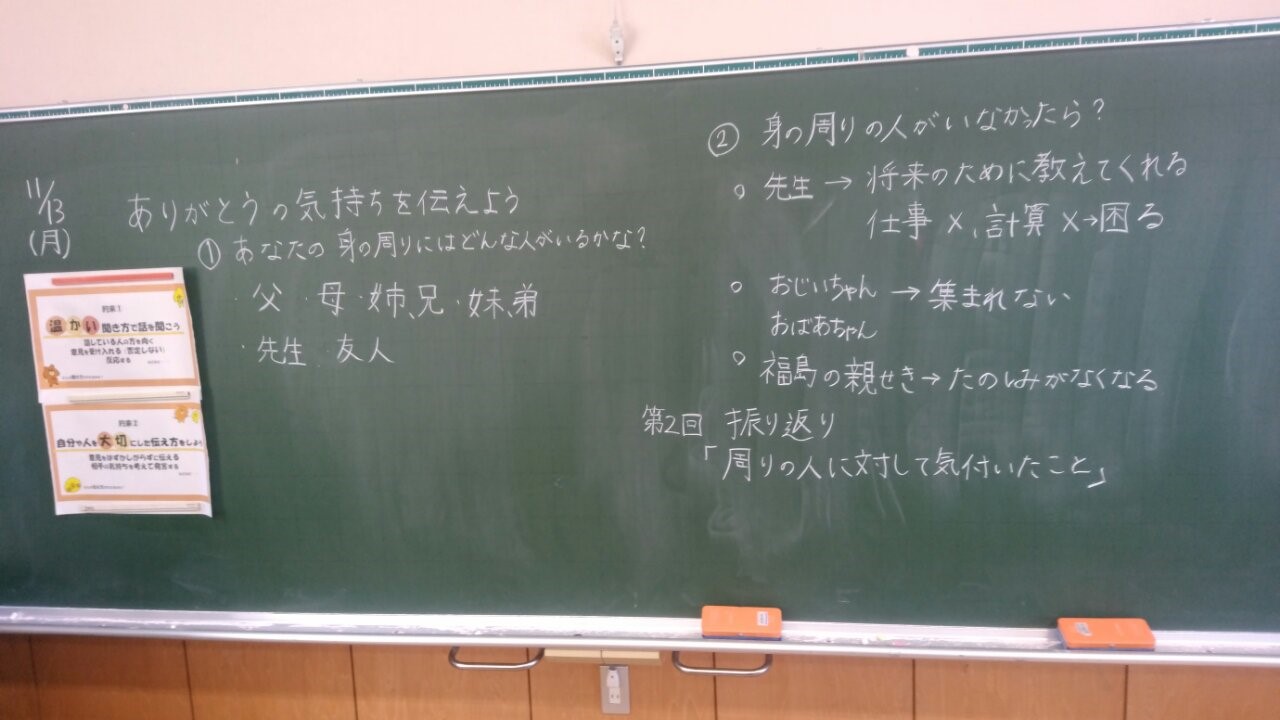 11/13
(月)
ありがとうの気持ちを伝えよう
① あなたの身の周りにはどんな人がいるかな?
・父・母・姉、兄・妹、弟
・先生 友人
約束①
温かい聞き方で話を聞こう
話している人の方を向く
意見を受け入れる(否定しない)
反応する
約束②
自分や人を大切にした伝え方をしよう
意見をはずかしがらずに伝える
相手の気持ちを考えて発言する
② 身の周りの人がいなかったら?
○ 先生→将来のために教えてくれる
仕事×、計算×→困る
○ おじいちゃん→集まれない
おばあちゃん
○ 福島の親せき→たのしみがなくなる
第2回 振り返り
「周りの人に対して気付いたこと」